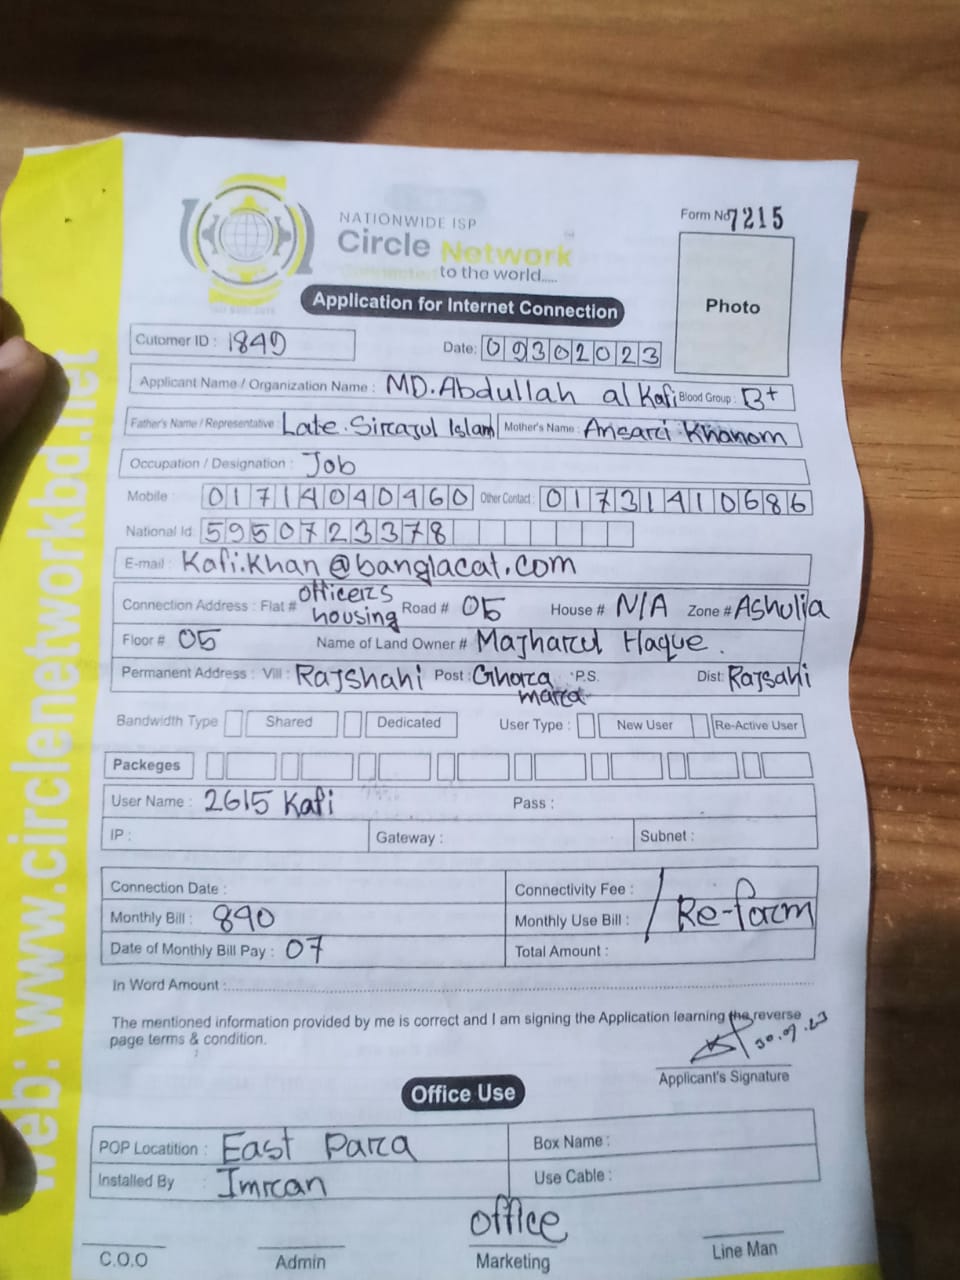 web: www.circlenetworkbd.net
NATIONWIDE ISP
Circle Network
Connected to the world.....
Form No 7215
Photo
Application for Internet Connection
Cutomer ID : 1849
Date: 09302023
Applicant Name / Organization Name : MD. Abdullah al Kafi Blood Group : B+
Father's Name / Representative : Late. Sirajul Islam Mother's Name : Ansari Khanom
Occupation / Designation : Job
Mobile : 01714040460 Other Contact : 01731410686
National Id: 5950723378
E-mail : Kafi.Khan@banglacat.com
Connection Address : Flat # officers housing Road # 05 House # N/A Zone # Ashulia
Floor # 05 Name of Land Owner # Majharul Haque.
Permanent Address : Vill : Rajshahi Post : Ghora mara P.S. Dist: Rajsahi
Bandwidth Type Shared Dedicated User Type : New User Re-Active User
Packeges
User Name : 2615 Kafi Pass :
IP : Gateway : Subnet :
Connection Date : Connectivity Fee :
Monthly Bill : 890 Monthly Use Bill : Re-form
Date of Monthly Bill Pay : 07 Total Amount :
In Word Amount :
The mentioned information provided by me is correct and I am signing the Application learning the reverse
page terms & condition.
30.09.23
Applicant's Signature
Office Use
POP Locatition : East Para Box Name :
Installed By : Imran Use Cable :
office
C.O.O Admin Marketing Line Man